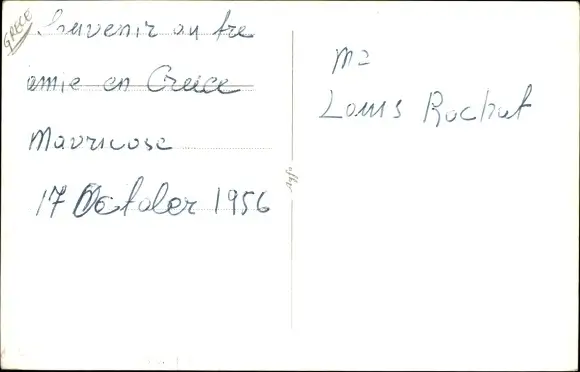 GRECE
Souvenir au tre
amie en Greice
Mavricose
17 October 1956
Mr
Louis Rochat